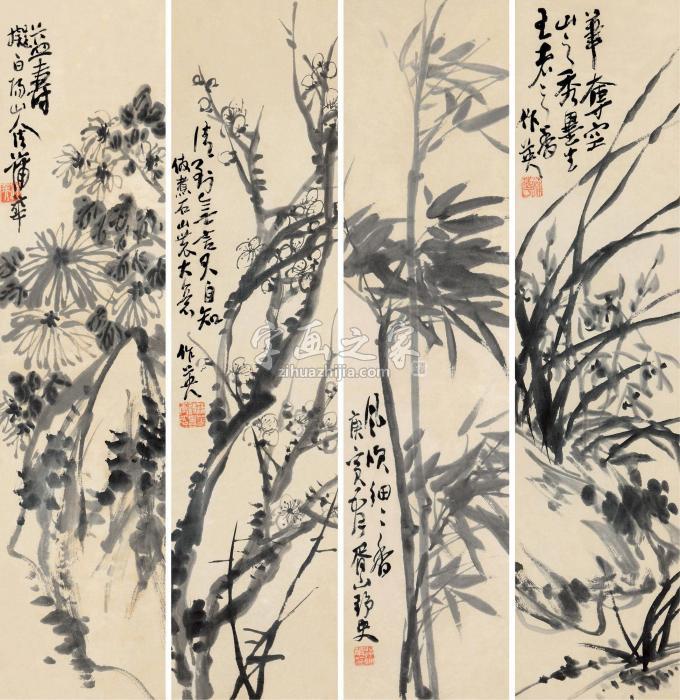 華奪空
山之秀墨生
王者之香
作英
風吹細々香
庚寅五月胥山野史
清無言自知
倣煮石山農大意
作英
益壽
擬白陽山蒲華
字画之家
zihuazhijia.com